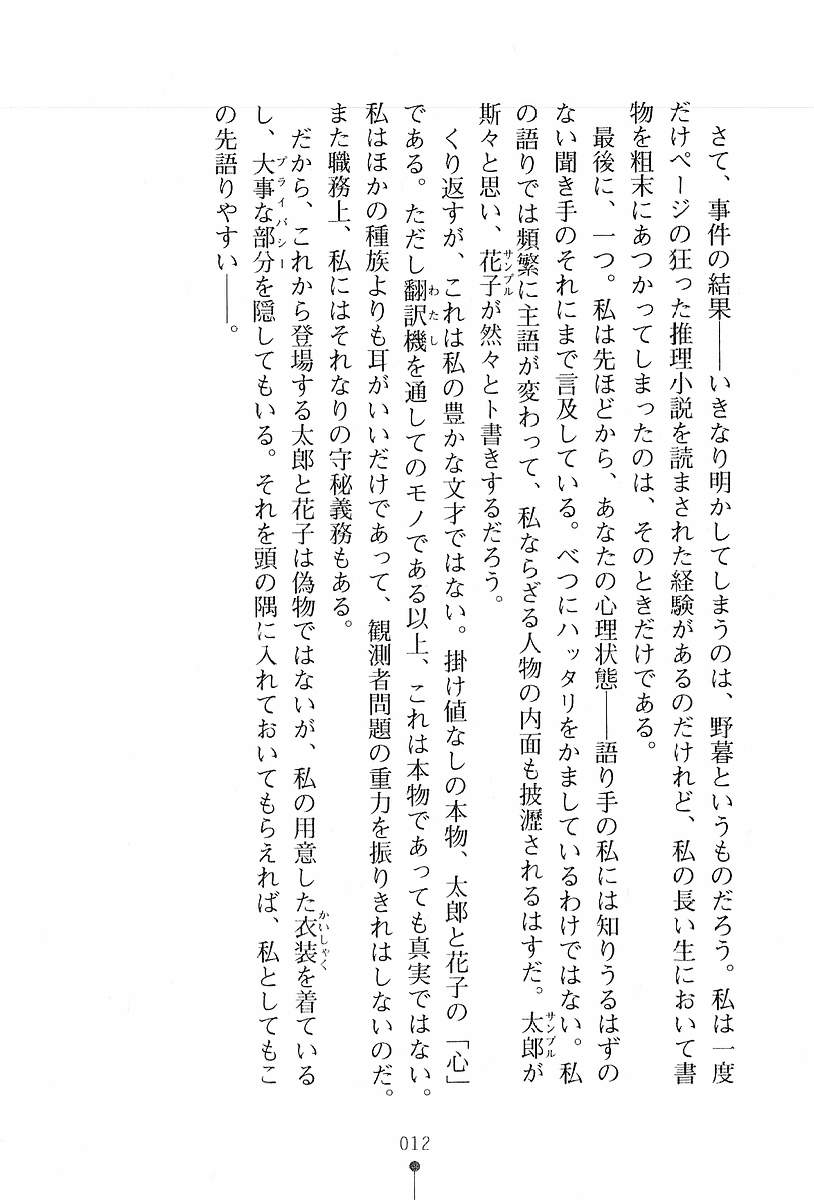 さて、事件の結果――いきなり明かしてしまうのは、野暮というものだろう。私は一度
だけページの狂った推理小説を読まされた経験があるのだけれど、私の長い生において書
物を粗末にあつかってしまったのは、そのときだけである。
最後に、一つ。私は先ほどから、あなたの心理状態――語り手の私には知りうるはずの
ない聞き手のそれにまで言及している。べつにハッタリをかましているわけではない。私
の語りでは頻繁に主語が変わって、私ならざる人物の内面も披瀝されるはすだ。太郎が
サンプル
斯々と思い、花子が然々とト書きするだろう。
サンプル
くり返すが、これは私の豊かな文才ではない。掛け値なしの本物、太郎と花子の「心」
である。ただし翻訳機を通してのモノである以上、これは本物であっても真実ではない。
わたし
私はほかの種族よりも耳がいいだけであって、観測者問題の重力を振りきれはしないのだ。
また職務上、私にはそれなりの守秘義務もある。
だから、これから登場する太郎と花子は偽物ではないが、私の用意した衣装を着ている
かいしゃく
し、大事な部分を隠してもいる。それを頭の隅に入れておいてもらえれば、私としてもこ
プライバシー
の先語りやすい――。
012